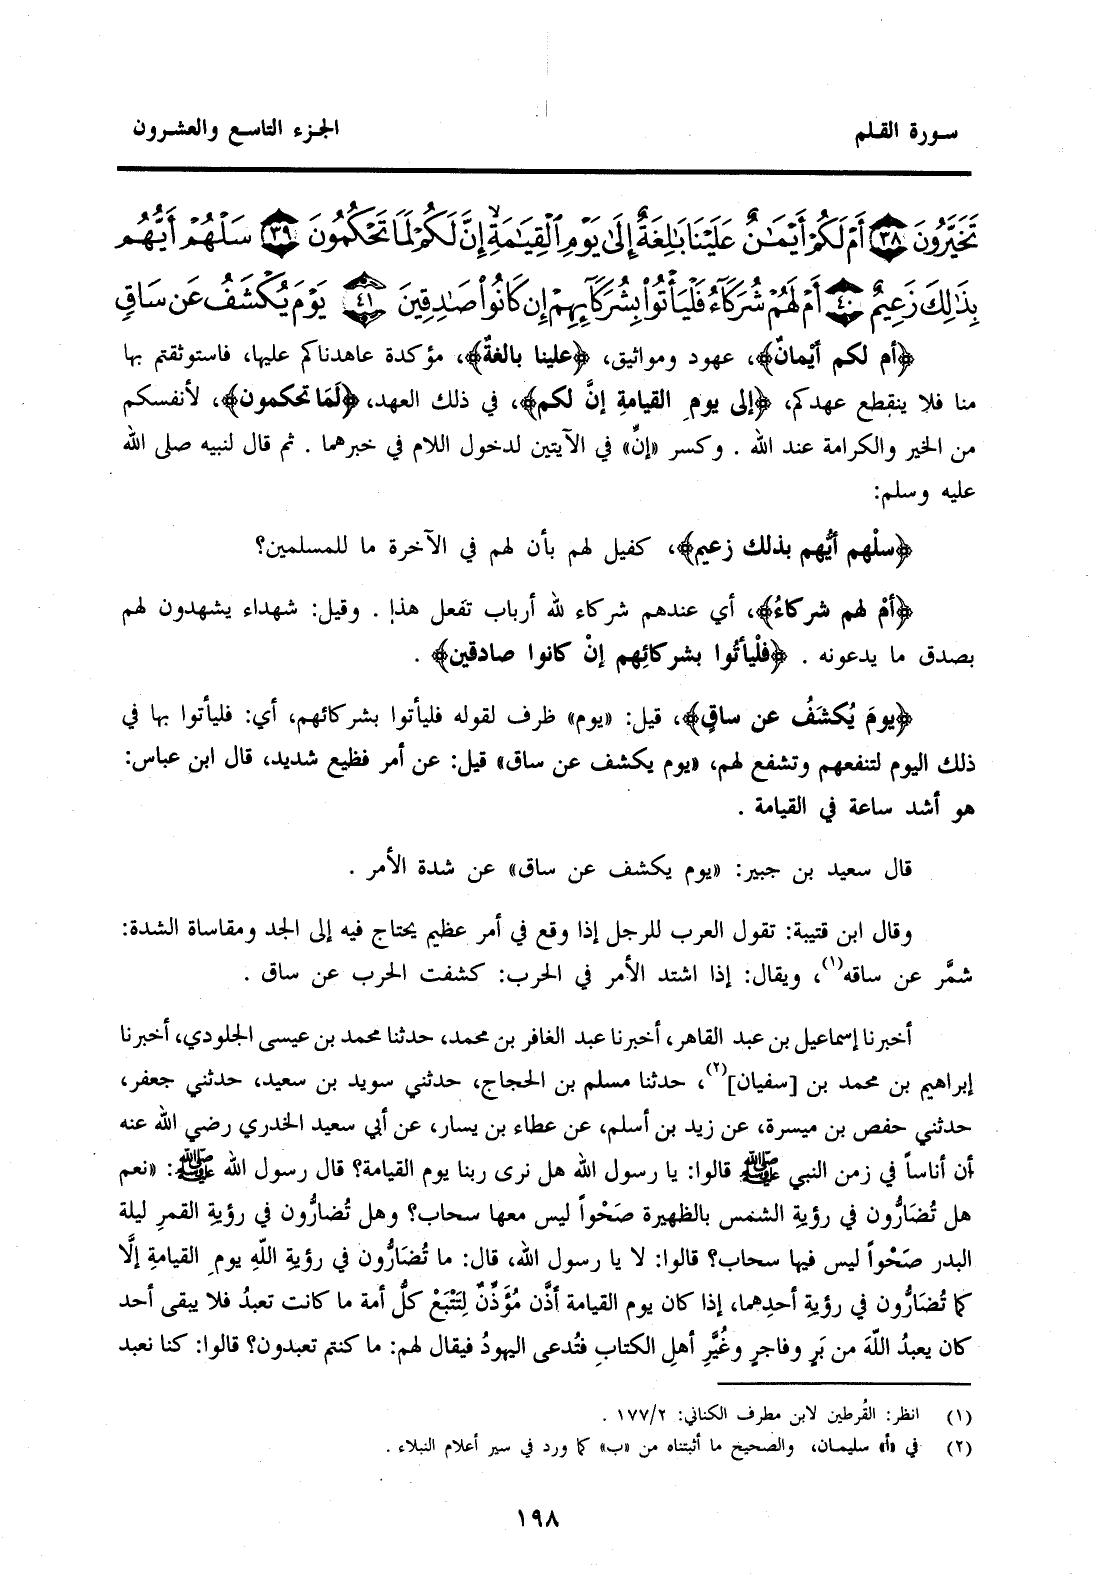 سورة القلم
الجزء التاسع والعشرون
تَخَيَّرُونَ ﴿٣٨﴾ أَمْ لَكُمْ أَيْمَٰنٌ عَلَيْنَا بَٰلِغَةٌ إِلَىٰ يَوْمِ الْقِيَٰمَةِ ۙ إِنَّ لَكُمْ لَمَا تَحْكُمُونَ ﴿٣٩﴾ سَلْهُمْ أَيُّهُم
بِذَٰلِكَ زَعِيمٌ ﴿٤٠﴾ أَمْ لَهُمْ شُرَكَآءُ فَلْيَأْتُوا۟ بِشُرَكَآئِهِمْ إِن كَانُوا۟ صَٰدِقِينَ ﴿٤١﴾ يَوْمَ يُكْشَفُ عَن سَاقٍ
﴿أم لكم أيْمانٌ﴾، عهود ومواثيق، ﴿علينا بالغةٌ﴾، مؤكدة عاهدناكم عليها، فاستوثقتم بها
منا فلا ينقطع عهدكم، ﴿إلى يومِ القيامةِ إنَّ لكم﴾، في ذلك العهد، ﴿لَمَا تحكمون﴾، لأنفسكم
من الخير والكرامة عند الله . وكسر «إنّ» في الآيتين لدخول اللام في خبرهما . ثم قال لنبيه صلى الله
عليه وسلم:
﴿سلْهم أيُّهم بذلك زعيم﴾، كفيل لهم بأن لهم في الآخرة ما للمسلمين؟
﴿أمْ لهم شركاءُ﴾، أي عندهم شركاء لله أرباب تفعل هذا . وقيل: شهداء يشهدون لهم
بصدق ما يدعونه . ﴿فلْيأتُوا بشركائِهم إنْ كانوا صادقين﴾ .
﴿يومَ يُكشَفُ عن ساقٍ﴾، قيل: «يوم» ظرف لقوله فليأتوا بشركائهم، أي: فليأتوا بها في
ذلك اليوم لتنفعهم وتشفع لهم، «يوم يكشف عن ساق» قيل: عن أمر فظيع شديد، قال ابن عباس:
هو أشد ساعة في القيامة .
قال سعيد بن جبير: «يوم يكشف عن ساق» عن شدة الأمر .
وقال ابن قتيبة: تقول العرب للرجل إذا وقع في أمر عظيم يحتاج فيه إلى الجد ومقاساة الشدة:
شمَّر عن ساقه(١)، ويقال: إذا اشتد الأمر في الحرب: كشفت الحرب عن ساق .
أخبرنا إسماعيل بن عبد القاهر، أخبرنا عبد الغافر بن محمد، حدثنا محمد بن عيسى الجلودي، أخبرنا
إبراهيم بن محمد بن [سفيان](٢)، حدثنا مسلم بن الحجاج، حدثني سويد بن سعيد، حدثني جعفر،
حدثني حفص بن ميسرة، عن زيد بن أسلم، عن عطاء بن يسار، عن أبي سعيد الخدري رضي الله عنه
أن أناساً في زمن النبي ﷺ قالوا: يا رسول الله هل نرى ربنا يوم القيامة؟ قال رسول الله ﷺ: «نعم
هل تُضَارُّون في رؤيةِ الشمس بالظهيرة صَحْواً ليس معها سحاب؟ وهل تُضارُّون في رؤيةِ القمرِ ليلة
البدر صَحْواً ليس فيها سحاب؟ قالوا: لا يا رسول الله، قال: ما تُضَارُّون في رؤيةِ اللّهِ يومِ القيامةِ إلَّا
كما تُضَارُّون في رؤيةِ أحدِهما، إذا كان يوم القيامة أذَّن مُؤَذِّنٌ لِتَتْبَعْ كلُّ أمة ما كانت تعبدُ فلا يبقى أحد
كان يعبدُ اللّهَ من بَرٍ وفاجرٍ وغُيَّرِ أهلِ الكتابِ فتُدعى اليهودُ فيقال لهم: ما كنتم تعبدون؟ قالوا: كنا نعبد
(١) انظر: القُرطين لابن مطرف الكناني: ١٧٧/٢ .
(٢) في «أ» سليمان، والصحيح ما أثبتناه من «ب» كما ورد في سير أعلام النبلاء .
١٩٨